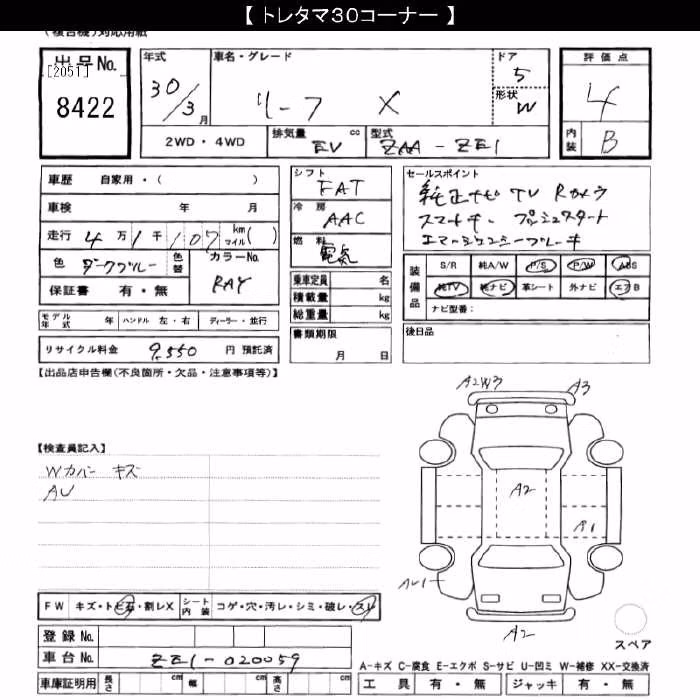 【 トレタマ30コーナー 】
(複合機)対応用紙
出品No.
[2051]
8422
年式
30/3 月
車名・グレード
リーフ X
ドア
5
形状
W
評価点
4
内装 B
2WD・4WD
排気量 cc
EV
型式
ZAA-ZE1
車歴 自家用・( )
車検 年 月
走行 4万1千107 km マイル( )
色 ダークブルー 色替
カラーNo.
RAY
保証書 有・無
シフト
FAT
冷房
AAC
燃料
電気
乗車定員 名
積載量 kg
総重量 kg
セールスポイント
純正ナビ TV Rカメラ
スマートキー プッシュスタート
エマージェンシーブレーキ
装備品
S/R 純A/W P/S P/W ABS
純TV 純ナビ 革シート 外ナビ エアB
ナビ型番:
モデル年式 年 ハンドル 左・右 ディーラー・並行
リサイクル料金 9,550 円 預託済
書類期限
月 日
後日品
【出品店申告欄(不良箇所・欠品・注意事項等)】
A2W3
A3
【検査員記入】
Wカバー キズ
AU
A2
A1
AU1
A2
FW キズ・トビ石・割レX シート内装 コゲ・穴・汚レ・シミ・破レ・スレ
登録No.
車台No. ZE1-020059
スペア
A-キズ C-腐食 E-エクボ S-サビ U-凹ミ W-補修 XX-交換済
車庫証明用 長さ cm 幅 cm 高さ cm
工具 有・無 ジャッキ 有・無